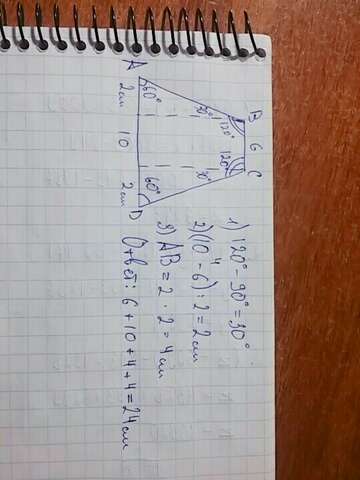 B 6 C
120° 120°
30° 30°
60° 60°
A 2см 10 2см D
1) 120° - 90° = 30°
2) (10 - 6) : 2 = 2 см
4
3) AB = 2 · 2 = 4 см
Ответ: 6 + 10 + 4 + 4 = 24 см